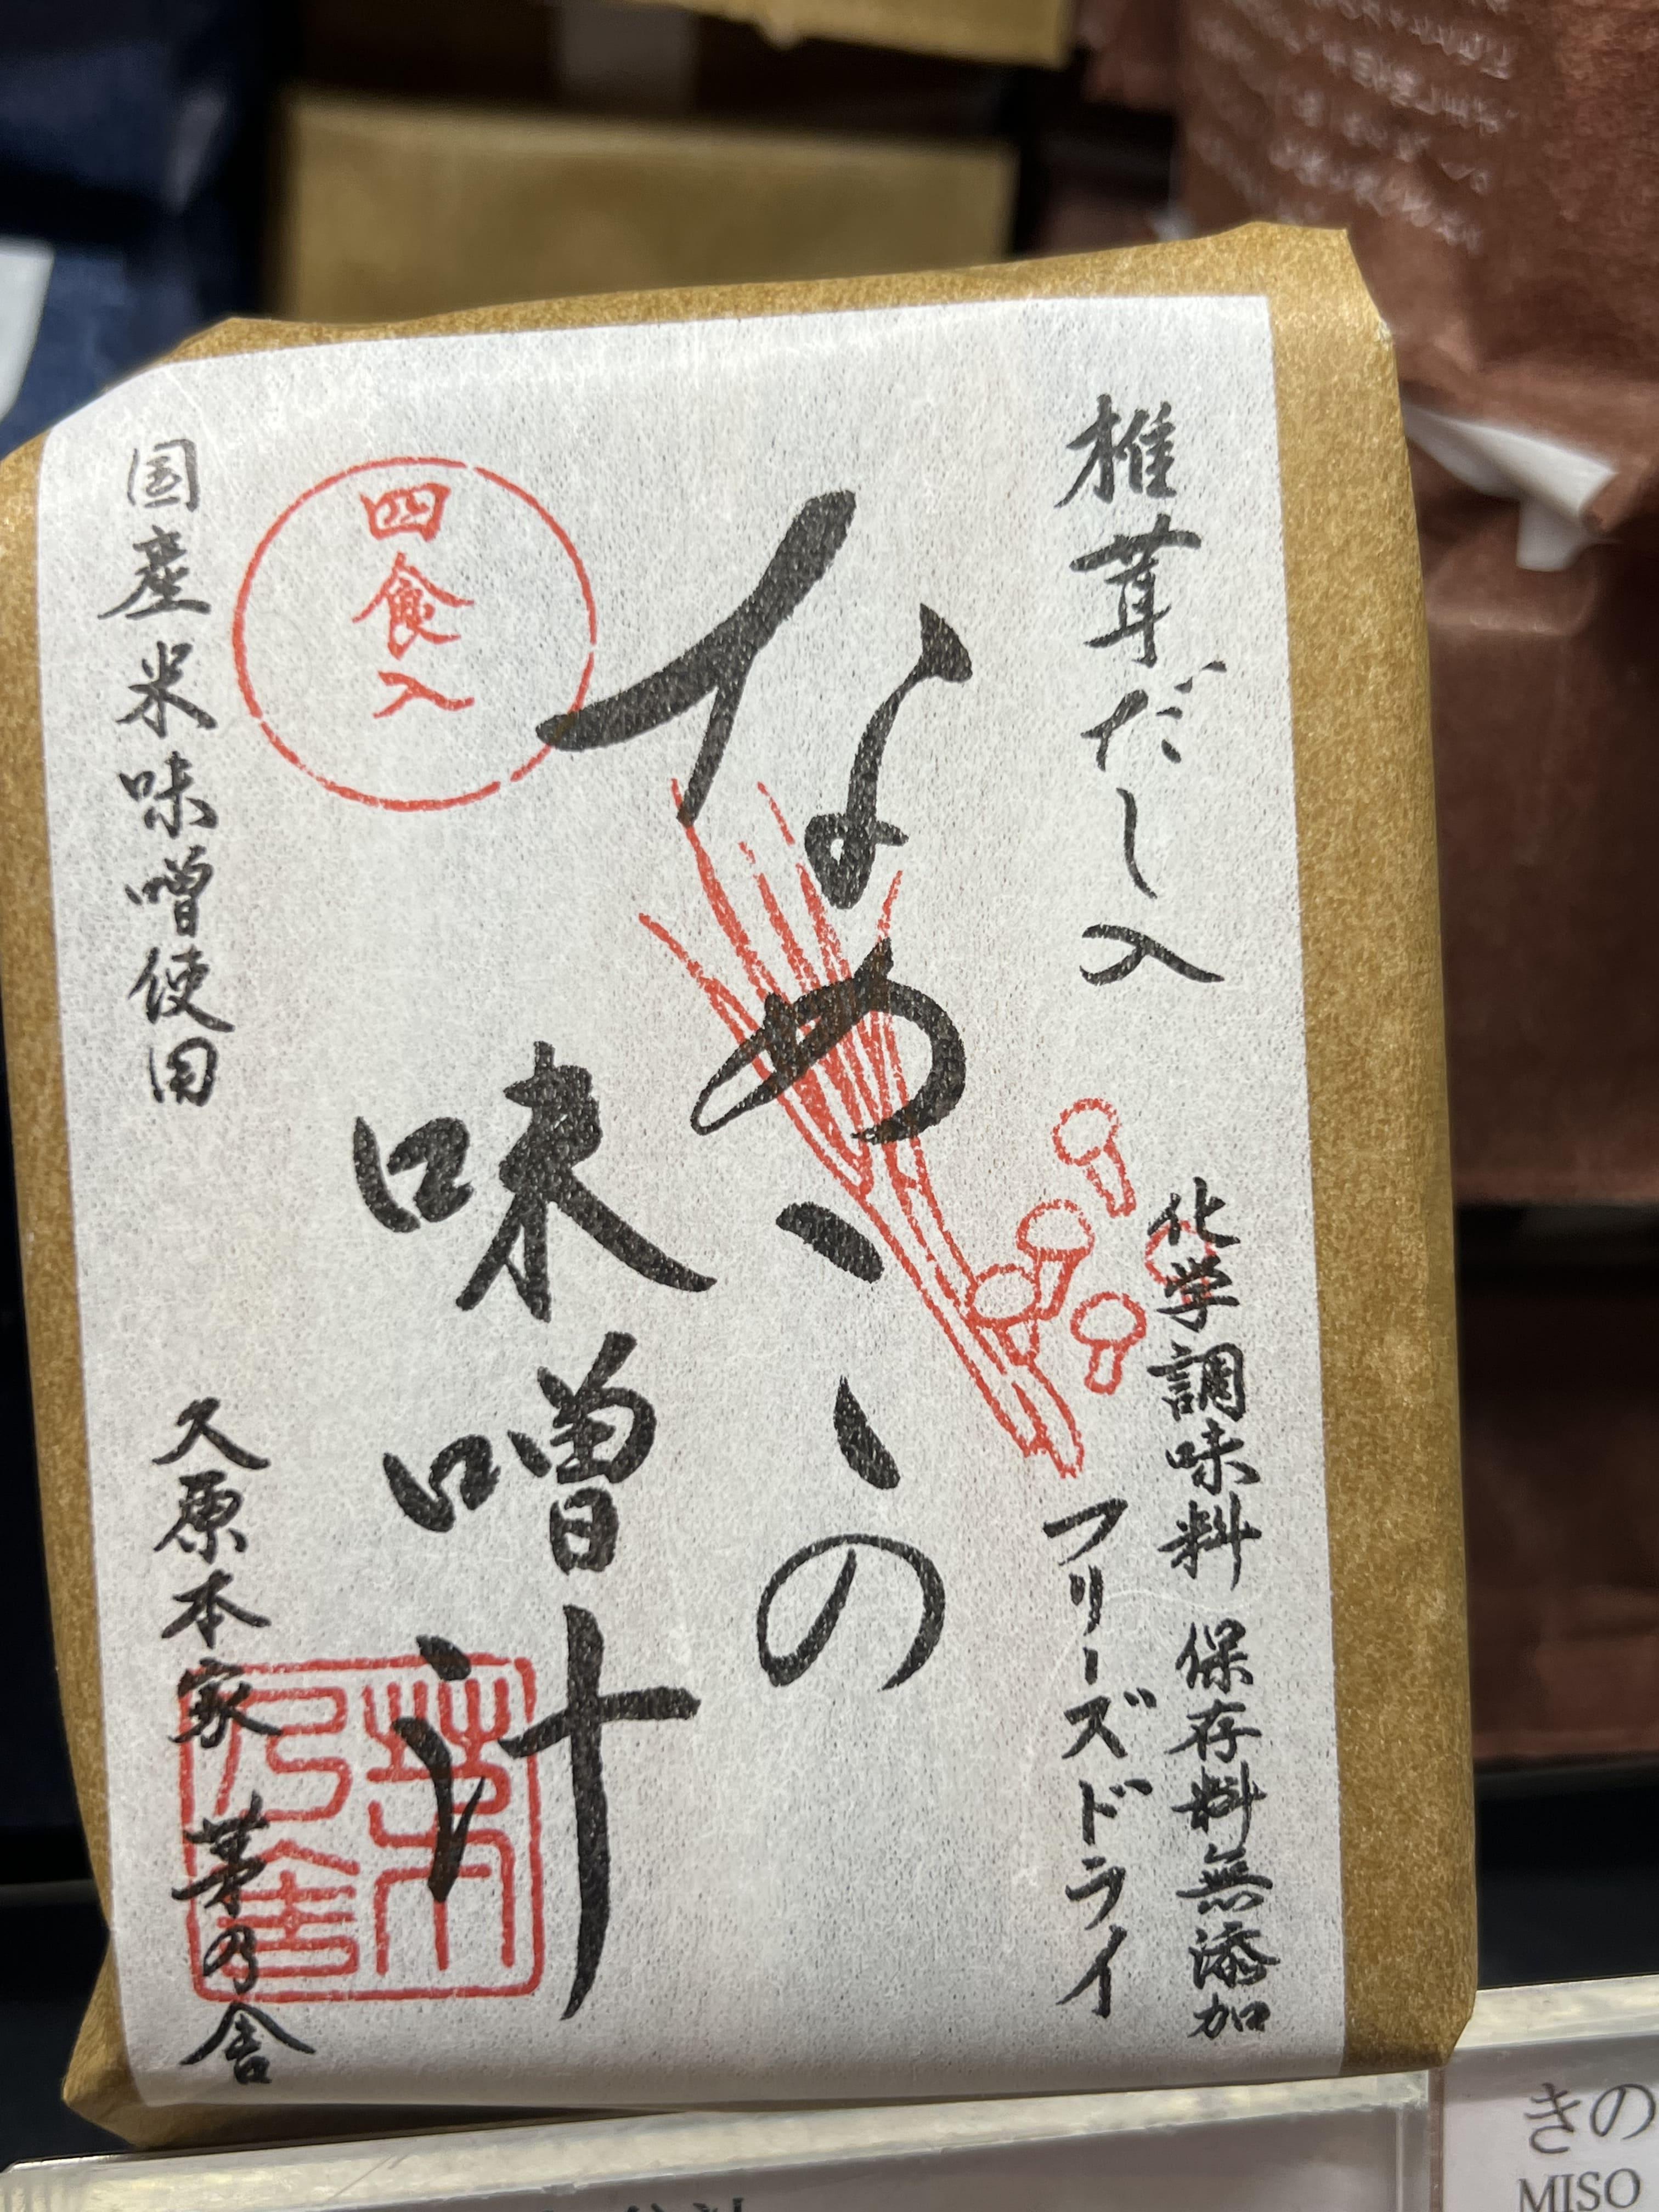 椎茸だし入
化学調味料 保存料無添加
フリーズドライ
なめこの
味噌汁
四食入
国産米味噌使用
久原本家 茅乃舎
茅乃舎
きの
MISO